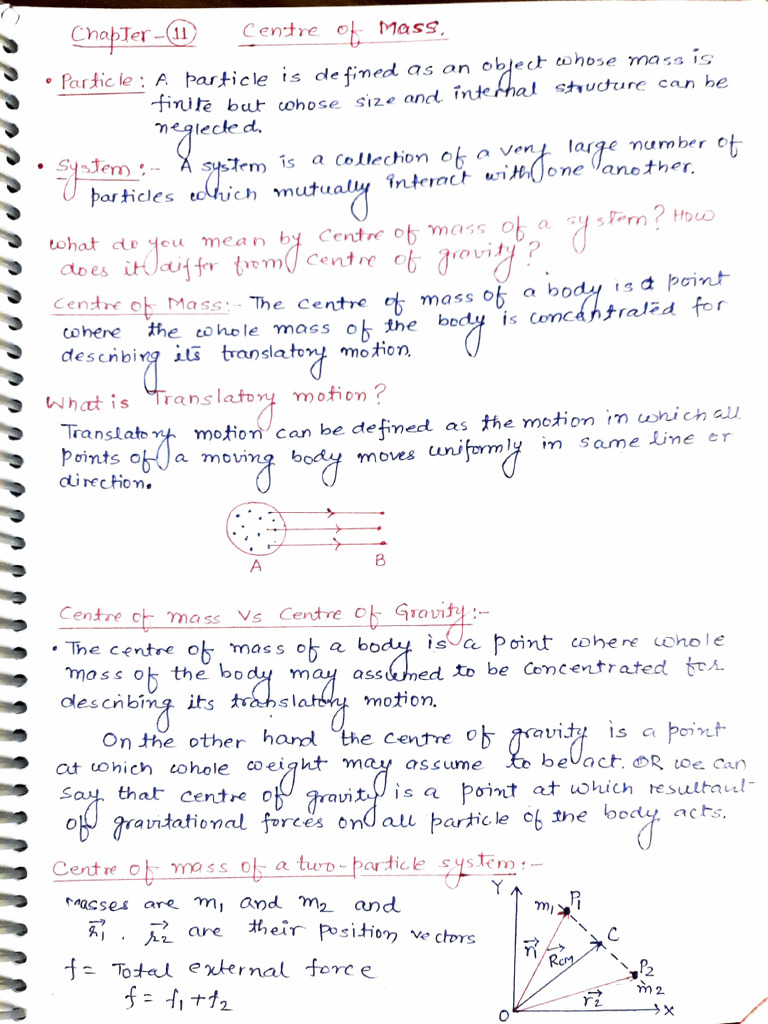 Chapter-11 Centre of Mass.
• Particle: A particle is defined as an object whose mass is
finite but whose size and internal structure can be
neglected.
• System:- A system is a collection of a very large number of
particles which mutually interact with one another.
What do you mean by Centre of mass of a system? How
does it differ from Centre of gravity?
Centre of Mass:- The centre of mass of a body is a point
where the whole mass of the body is concentrated for
describing its translatory motion.
What is Translatory motion?
Translatory motion can be defined as the motion in which all
points of a moving body moves uniformly in same line or
direction.
A B
Centre of mass Vs Centre Of Gravity:-
• The centre of mass of a body is a point where whole
mass of the body may assumed to be concentrated for
describing its translatory motion.
On the other hand the centre of gravity is a point
at which whole weight may assume to be act. OR we can
say that centre of gravity is a point at which resultant
of gravitational forces on all particle of the body acts.
Centre of mass of a two-particle system:-
Masses are m₁ and m₂ and
r⃗₁, r⃗₂ are their position vectors
f = Total external force
f = f₁+f₂
Y
m₁ P₁
C
r⃗₁ R⃗CM
P₂
m₂
r⃗₂
O X